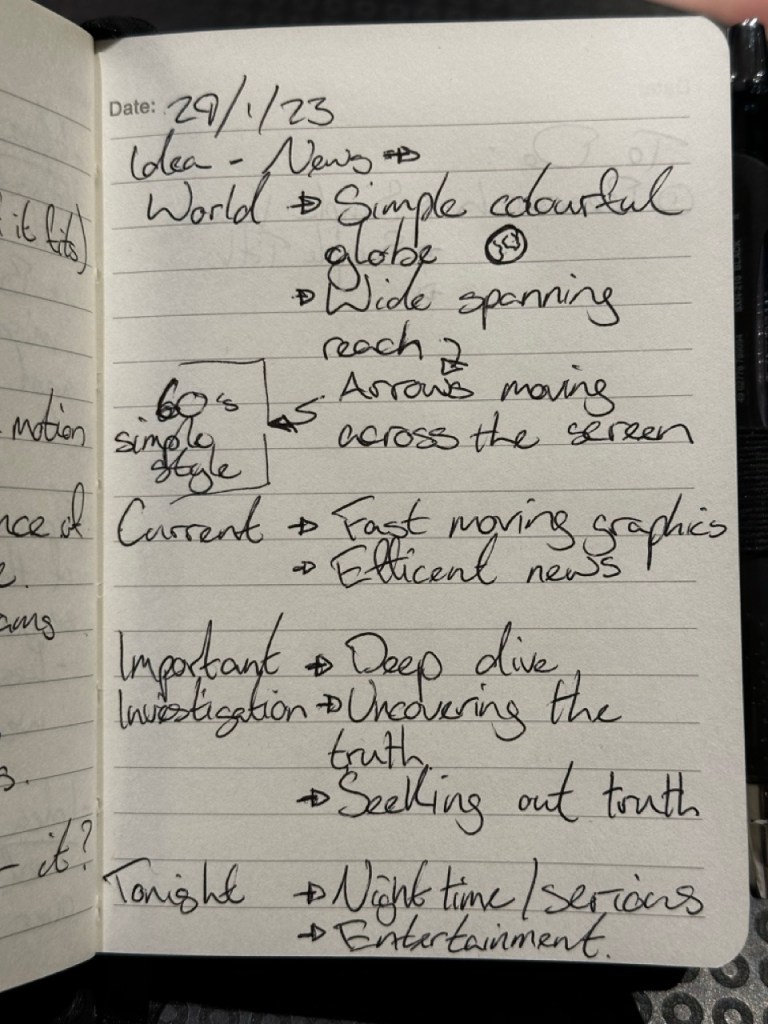 it fits)
motion
nce of
e.
ams
s.
- it?
Date: 29/1/23
Idea - News →
World → Simple colourful
globe
→ Wide spanning
reach
Arrows moving
across the screen
60's
simply
style
Current → Fast moving graphics
→ Efficent news
Important → Deep dive
Investigation → Uncovering the
truth
→ Seeking out truth
Tonight → Night time/serious
→ Entertainment.